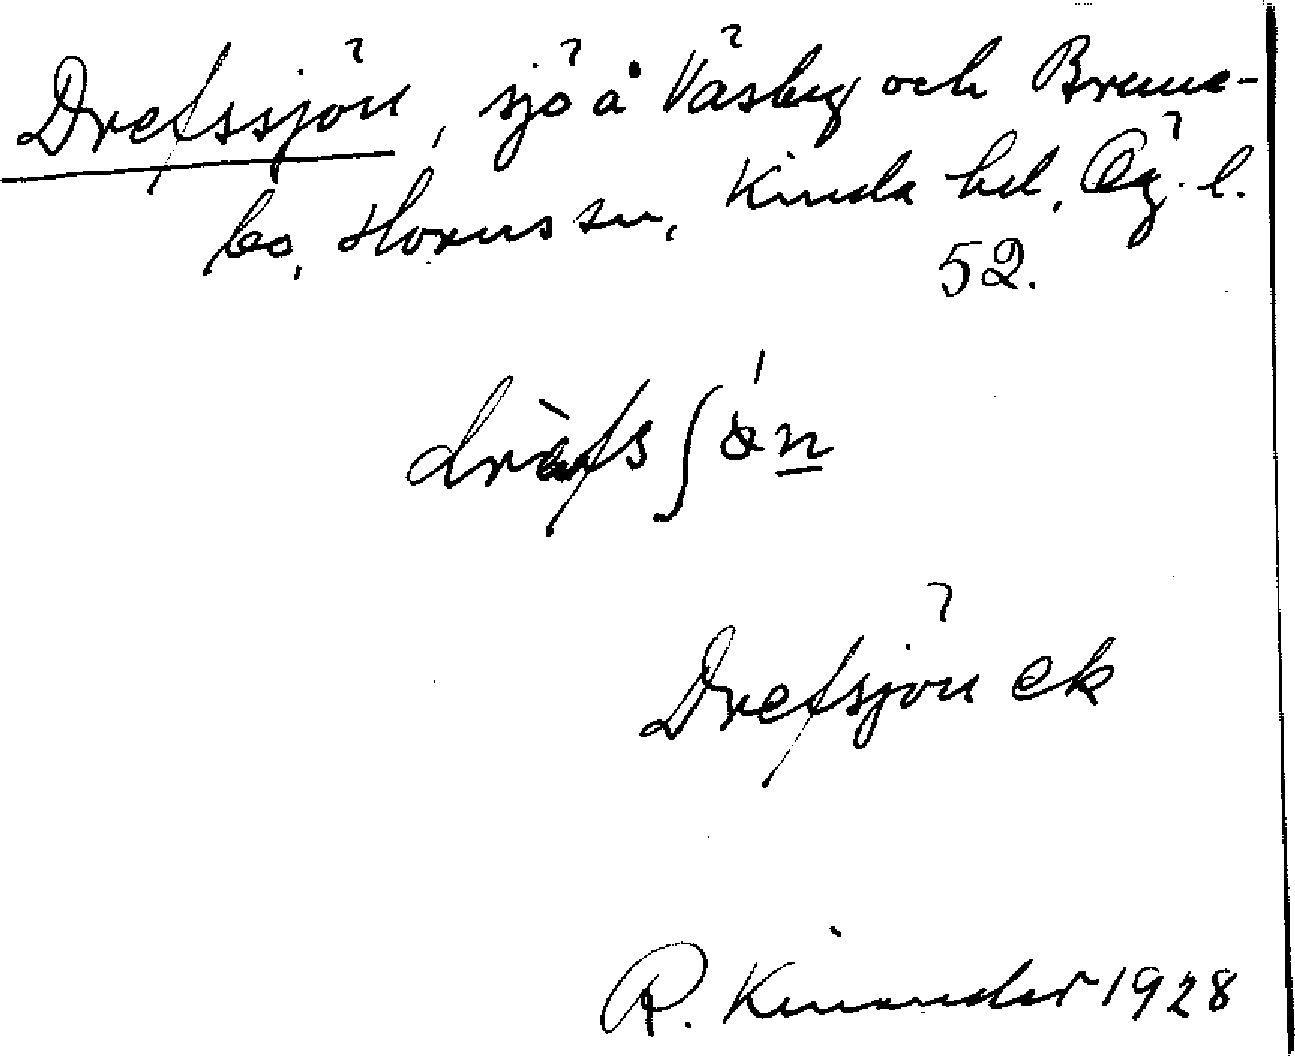 Drefssjön, sjö å Väsby och Brune-
bo, Horns sn, Kinda hd, Ög. l.
52.
dràfsʃǿn
Drefsjön ek
R. Kinander 1928